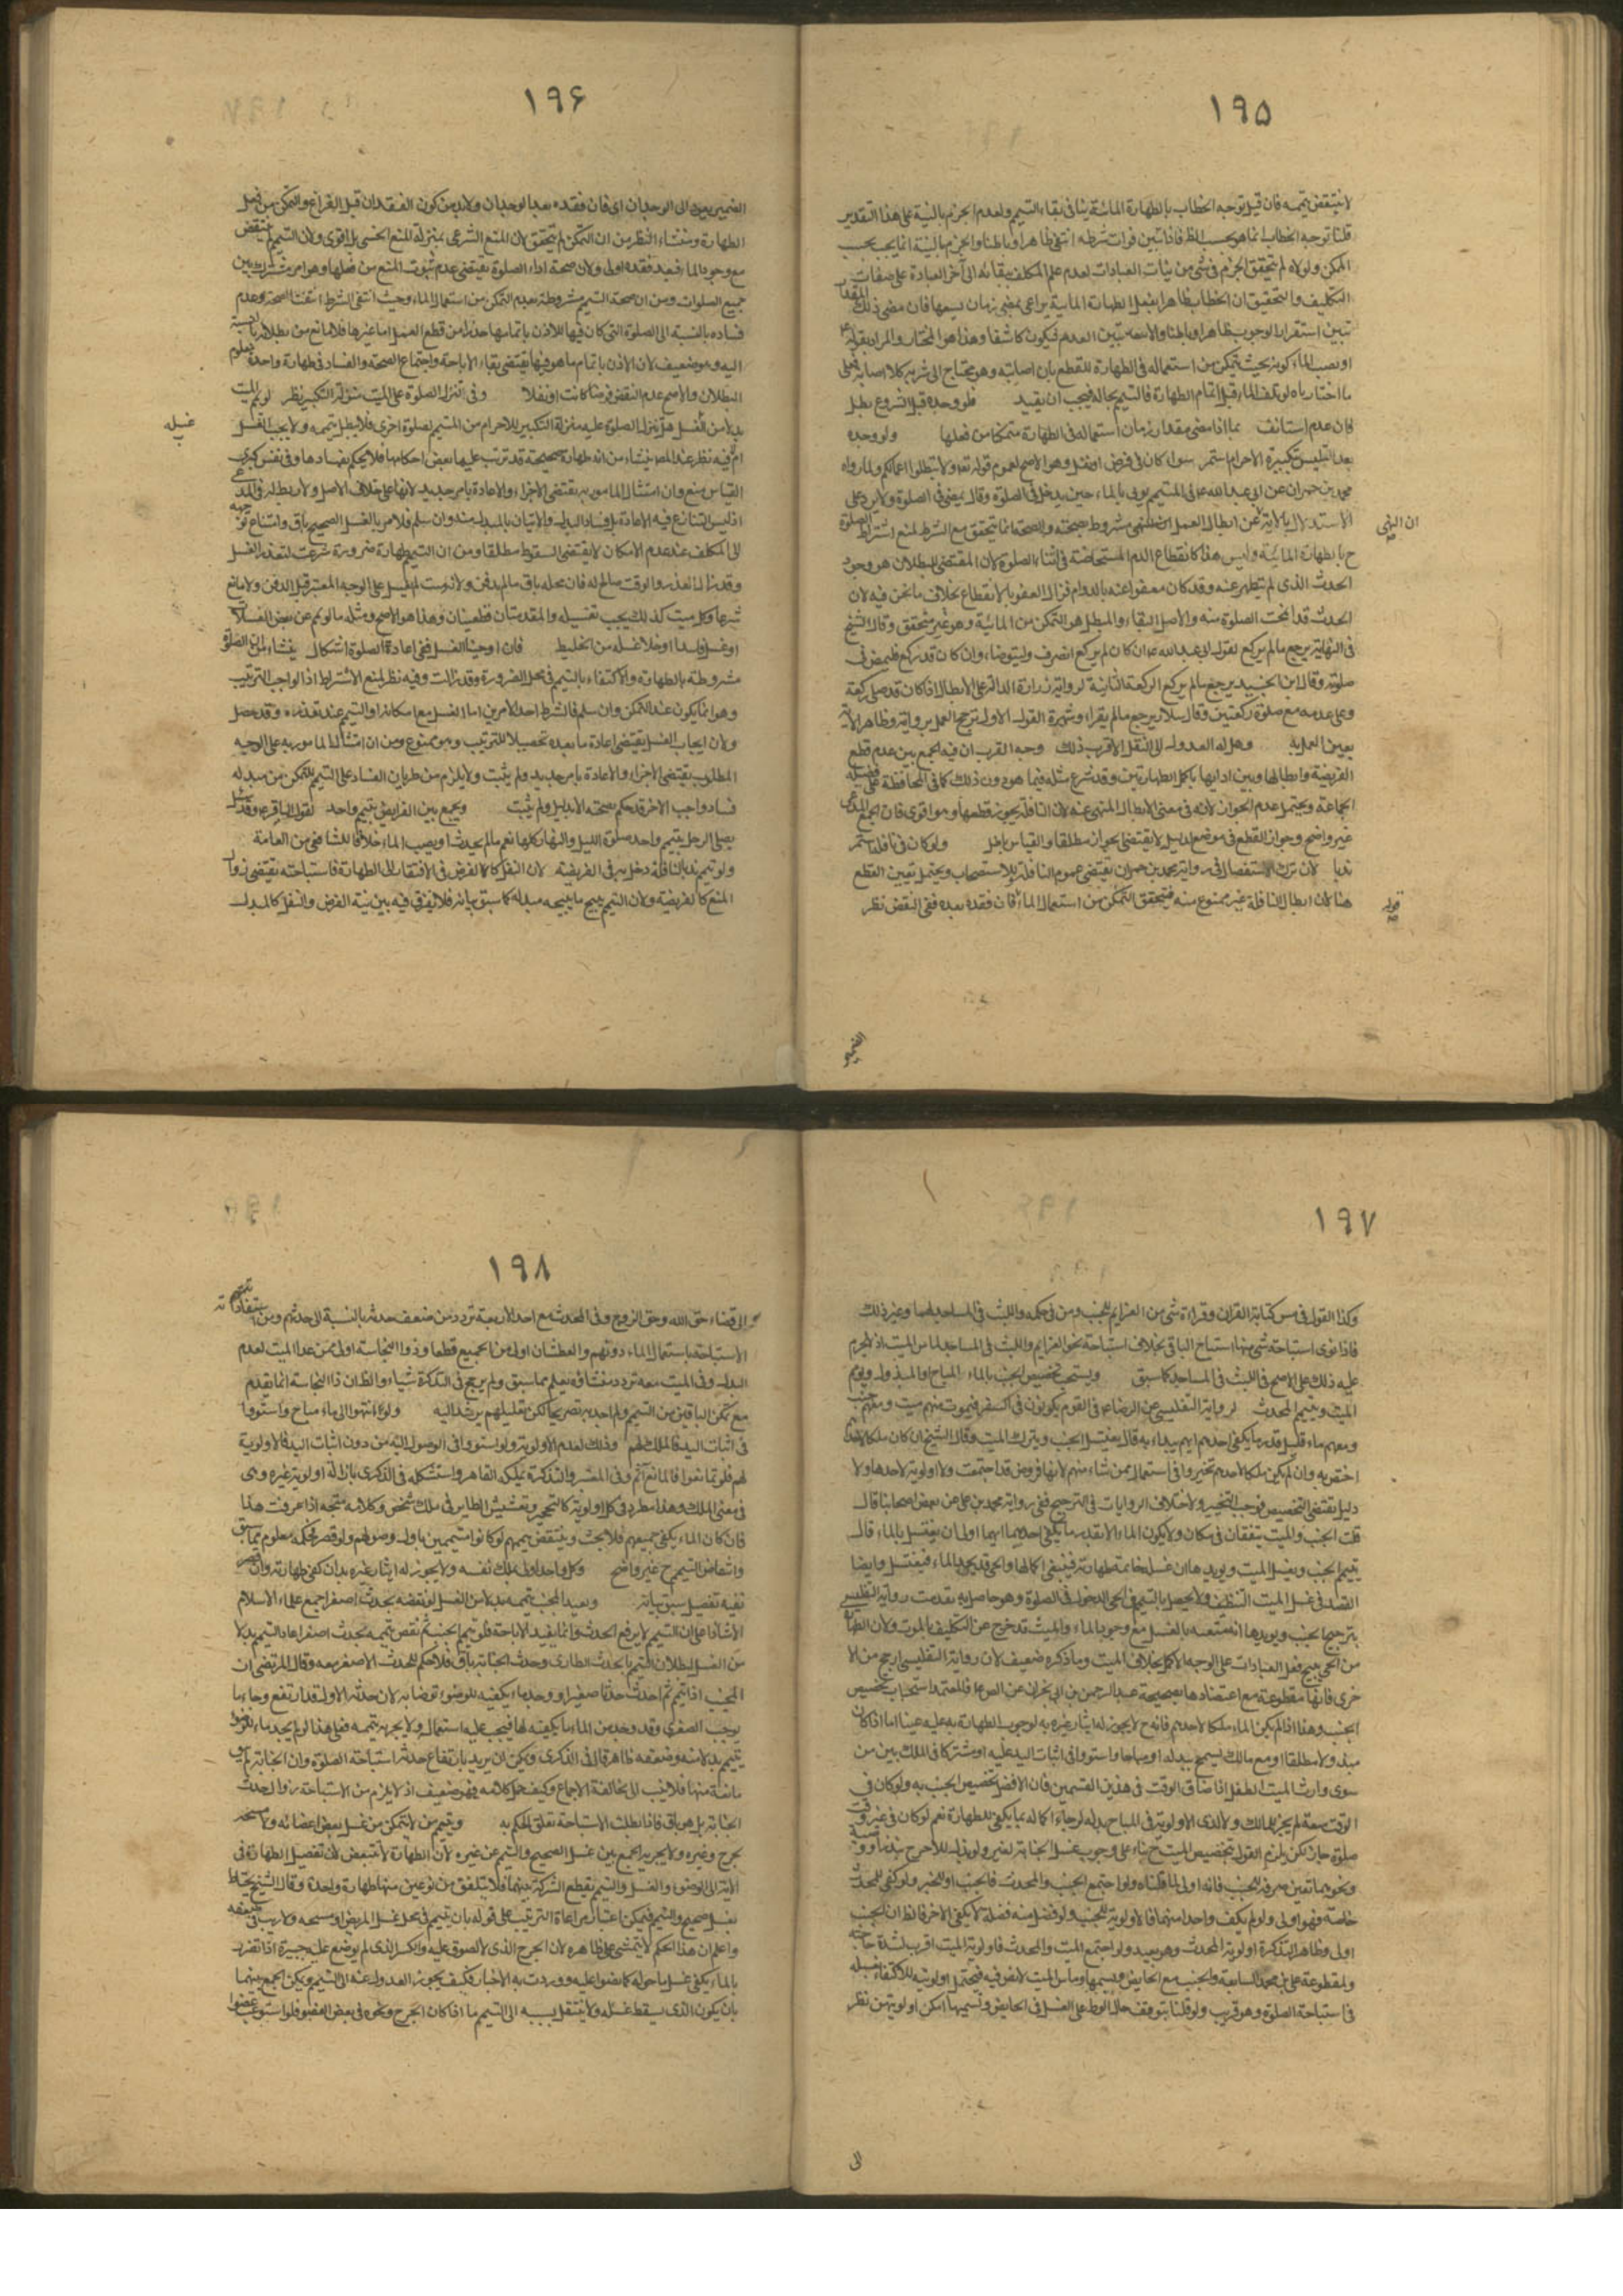 ١٩۵
لا ينتقض تيممه فان قيل توجه الخطاب بالطهارة المائية ينافى بقاء التيمم ولعدم الجزم بالنية على هذا التقدير
قلنا توجه الخطاب انما هو بحسب الظ فاذا تبين فوات شرطه انتفى ظاهرا وباطنا والجزم بالنية انما يجب بحسب
الممكن ولولاه لم يتحقق الجزم فى شئ من نيات العبادات لعدم علم المكلف ببقائه الى آخر العبادة على صفات
التكليف والتحقيق ان الخطاب ظاهرا بفعل الطهارة المائية يراعى بمضى زمان يسعها فان مضى ذلك المقدار
تبين استقرار الوجوب ظاهرا وباطنا والا تبين العدم فيكون كاشفا وهذا هو المختار والمراد بقوله
او يصب الماء كونه بحيث يتمكن من استعماله فى الطهارة للقطع بان اصابته وهو محتاج الى شربه كلا اصابة فعلى
ما اختارناه لو تلف الماء قبل اتمام الطهارة فالتيمم بحاله فيجب ان يقيد فلو وجده قبل الشروع بطل
فان عدم استأنف بما اذا مضى مقدار زمان استعماله فى الطهارة متمكنا من فعلها ولو وجده
بعد التلبس بتكبيرة الاحرام استمر سواء كان فى فرض او نفل وهو الاصح لعموم قوله تعه ولا تبطلوا اعمالكم ولما رواه
محمد بن حمران عن ابى عبد الله ع فى المتيمم يؤتى بالماء حين يدخل فى الصلوة وقال يمضى فى الصلوة ولا يرد على
الاستدلال بالاية ان النهى عن ابطال العمل مشروط بصحته والصحة انما تتحقق مع الشرط لمنع اشتراط الصلوة
ح بالطهارة المائية وليس هذا كانقطاع الدم للمستحاضة فى اثناء الصلوة لان المقتضى للبطلان هو وجود
الحدث الذى لم تتطهر عنه وقد كان معفوا عنه بالدوام فزال العفو بالانقطاع بخلاف ما نحن فيه لان
الحدث قد ابيحت الصلوة منه والاصل البقاء والمبطل هو التمكن من المائية وهو غير متحقق وقال الشيخ
فى النهاية يرجع ما لم يركع لقول ابى عبد الله ع ان كان لم يركع انصرف وليتوضاء وان كان قد ركع فليمض فى
صلوته وقال ابن الجنيد يرجع ما لم يركع الركعة الثانية لرواية زرارة الدالة على الابطال اذا كان قد صلى ركعة
وعلى عدمه مع صلوة ركعتين وقال سلار يرجع ما لم يقراء وشهرة القول الاول ترجح العمل بروايته وظاهر الاية
يعين العمل به وهل له العدول الى النفل الاقرب ذلك وجه القرب ان فيه الجمع بين عدم قطع
الفريضة وابطالها وبين ادائها باكمل الطهارتين وقد شرع مثله فيما هو دون ذلك كما فى المحافظة على فضيلة
الجماعة ويحتمل عدم الجواز لانه فى معنى الابطال المنهى عنه لان النافلة يجوز قطعها وهو اقوى فان الجمع المدعى
غير واضح وجواز القطع فى موضع لدليل لا يقتضى الجواز مطلقا والقياس باطل ولو كان فى نافلة استمر
ندبا لان ترك الاستفصال فى رواية محمد بن حمران يقتضى عموم النافلة وللاستصحاب ويحتمل تعيين القطع
هنا لان ابطال النافلة غير ممنوع منه فيتحقق التمكن من استعمال الماء فان فقده بعده ففى النقض نظر
قوله
الضمير
١٩۶
الضمير يعود الى الوجدان اى فان فقده بعد الوجدان ولا بد من كون الفقدان قبل الفراغ والتمكن من فعل
الطهارة ومنشاء النظر من ان التمكن لم يتحقق لان المنع الشرعى بمنزلة المنع الحسى بل اقوى ولان التيمم لم ينتقض
مع وجود الماء فبعد فقده اولى ولان صحة اداء الصلوة يقتضى عدم ثبوت المنع من فعلها وهو امر مشترك بين
جميع الصلوات ومن ان صحة التيمم مشروطة بعدم التمكن من استعمال الماء وحيث انتفى الشرط انتفت الصحة وعدم
فساده بالنسبة الى الصلوة التى كان فيها للاذن باتمامها حذرا من قطع العمل اما غيرها فلا مانع من بطلانه بالنسبة
اليه وهو ضعيف لان الاذن باتمام ما هو فيها يقتضى بقاء الاباحة واجتماع الصحة والفساد فى طهارة واحدة معلوم
البطلان والاصح عدم النقض فرضا كانت او نفلا وفى تنزل الصلوة على الميت منزلة التكبير نظر لو يمم الميت
بدلا من الغسل هل تنزل الصلوة عليه منزلة التكبير للاحرام من المتيمم لصلوة اخرى فلا يبطل تيممه ولا يجب الغسل
غسله
ام لا فيه نظر عند المصـ ينشاء من انه طهارة صحيحة قد ترتب عليها بعض احكامها فلا يحكم بفسادها وفى نفس كبرى
القياس منع وان امتثال المامور به يقتضى الاجزاء والاعادة بامر جديد لانها على خلاف الاصل ولا ربط له فى المدعى
اذ ليس المتنازع فيه الاعادة بل فساد البدل والاتيان بالمبدل منه وان سلم فلامر بالغسل الصحيح باق وامتناع توجهه
الى المكلف عند عدم الامكان لا يقتضى السقوط مطلقا ومن ان التيمم طهارة ضرورة شرعت لتعذر الغسل
وقد زال العذر والوقت صالح له فان محله باق ما لم يدفن ولانه ميت لم يغسل على الوجه المعتبر قبل الدفن ولا مانع
شرعا وكل ميت كذلك يجب تغسيله والمقدمتان قطعيتان وهذا هو الاصح ومثله ما لو يمم عن بعض الغسلات
او غسل فاسدا او خلا غسله من الخليط فان اوجبنا الغسل ففى اعادة الصلوة اشكال ينشاء من ان الصلوة
مشروطة بالطهارة والاكتفاء بالتيمم فى محل الضرورة وقد زالت وفيه نظر لمنع الاشتراط اذ الواجب الترتيب
وهو انما يكون عند التمكن وان سلم فالشرط احد الامرين اما الغسل مع امكانه او التيمم عند تعذره وقد حصل
ولان ايجاب الغسل يقتضى اعادة ما بعده تحصيلا للترتيب وهو ممنوع ومن ان امتثال المامور به على الوجه
المطلوب يقتضى الاجزاء والاعادة بامر جديد ولم يثبت ولا يلزم من طريان الفساد على التيمم للتمكن من مبدله
فساد واجب الاخر قد حكم بصحته الا بدليل ولم يثبت ويجمع بين الفرايض بتيمم واحد لقول الباقر ع وقد سئل
يصلى الرجل بتيمم واحد صلوة الليل والنهار كلها نعم ما لم يحدث او يصب الماء خلافا للشافعى من العامة
ولو تيمم ندبا لنافلة دخل به فى الفريضة لان النفل كالفرض فى الافتقار الى الطهارة فاستباحته يقتضى زوال
المنع كالفريضة ولان التيمم يبيح ما يبيحه مبدله كما سبق بيانه فلا يفرق فيه بين نية الفرض والنفل كالمبدل
١٩٧
وكذا القول فى مس كتابة القران وقراءة شئ من العزايم للجنب ومن فى حكمه واللبث فى المساجد لهما وغير ذلك
فاذا نوى استباحة شئ منها استباح الباقى بخلاف استباحة نحو العزايم واللبث فى المساجد لماس الميت اذ لا يحرم
عليه ذلك على الاصح فى اللبث فى المساجد كما سبق ويستحب تخصيص الجنب بالماء المباح او المبذول ويمم
الميت ويتيمم المحدث لرواية التفليسى عن الرضا ع فى القوم يكونون فى السفر فيموت منهم ميت ومعهم جنب
ومعهم ماء قليل قدر ما يكفى احدهم ايهم يبداء به قال يغتسل الجنب ويترك الميت وقال الشيخ ان كان ملكا لاحدهم
اختص به وان لم يكن ملكا لاحدهم تخيروا فى استعماله بمن شاء منهم لانها فروض قد اجتمعت ولا اولوية لاحدها ولا
دليل يقتضى التخصيص فوجب التخيير ولاختلاف الروايات فى الترجيح ففى رواية محمد بن على عن بعض اصحابنا قال
قلت الجنب والميت يتفقان فى مكان ولا يكون الماء الا بقدر ما يكفى احدهما ايهما اولى ان يغتسل بالماء قال
يتيمم الجنب ويغسل الميت ويؤيدها ان غسله خاتمة طهارته فينبغى اكمالها والحى قد يجد الماء فيغتسل وايضا
القصد فى غسل الميت التنظيف ولا يحصل بالتيمم وفى الحى الدخول فى الصلوة وهو حاصل به تقدمت رواية التفليسى
بترجيح الجنب ويؤيدها انه متعبد بالغسل مع وجود الماء والميت قد خرج عن التكليف بالموت ولان الطهارة
من الحى يبيح فعل العبادات على الوجه الاكمل بخلاف الميت وما ذكره ضعيف لان رواية التفليسى ارجح من الا
خرى فانها مقطوعة مع اعتضادها بصحيحة عبد الرحمن بن ابى نجران عن الصـ ع فالمعتمد استحباب تخصيص
الجنب وهذا اذا لم يكن الماء ملكا لاحدهم فانه ح لا يجوز له ايثار غيره به لوجوب الطهارة به عليه عينا اما اذا كان
مبذولا مطلقا او مع مالك يسمح ببذله او مباحا واستووا فى اثبات اليد عليه او مشتركا فى الملك بين من
سوى وارث الميت الطفل اذا ضاق الوقت فى هذين القسمين فان الافضل تخصيص الجنب به ولو كان فى
الوقت سعة لم يجز للمالك ولا لذى الاولوية فى المباح بذله لرجاء اكماله بما يكفى للطهارة نعم لو كان فى غير وقت
صلوة جاز لكن يلزم القول بتخصيص الميت ح بناء على وجوب غسل الجنابة لغيره ولو بذله للاحوج بنذر او وصية
ونحوهما تعين صرفه للجنب فانه اولى لما قلناه ولو اجتمع الجنب والمحدث فالجنب اولى للخبر ولو كفى للمحدث
خاصة فهو اولى ولو لم يكف واحدا منهما فالاولوية للجنب ولو فضل منه فضلة لا يكفى الاخر فالظ ان الجنب
اولى وظاهر التذكرة اولوية المحدث وهو بعيد ولو اجتمع الميت والمحدث فاولوية الميت اقرب لشدة حاجته
ولمقطوعة على بن محمد السابقة والجنب مع الحايض وقسيمها وماس الميت لا نص فيه فيحتمل اولويته للاكتفاء بغسله
فى استباحة الصلوة وهو قريب ولو قلنا بتوقف حل الوطء على الغسل فى الحايض وقسيمها امكن اولويتهن نظر
الى
١٩٨
الى قضاء حق الله وحق الزوج وفى المحدث مع احد الاربعة تردد من ضعف حدثه بالنسبة الى حدثهم ومن استفادته
الاستباحة باستعمال الماء دونهم والعطشان اولى من الجميع قطعا وذو النجاسة اولى ممن عدا الميت لعدم
البدل وفى الميت معه تردد منشاؤه يعلم مما سبق ولم يرجح فى التذكرة شيئا والظ ان ذا النجاسة انما يقدم
مع تمكن الباقين من التيمم ولم اجد به تصريحا لكن تعليلهم يرشد اليه ولو انتهوا الى ماء مباح واستووا
فى اثبات اليد فالملك لهم وذلك لعدم الاولوية ولو استووا فى الوصول اليه من دون اثبات اليد فالاولوية
لهم فلو تمانعوا فالمانع آثم وفى المعتبر والتذكرة يملكه القاهر واستشكله فى الذكرى بازالة اولوية غيره وهى
فى معنى الملك وهذا مطرد فى كل اولوية كالتحجير وتعشيش الطاير فى ملك شخص وكلامه متجه اذا عرفت هذا
فان كان الماء يكفى جميعهم فلا بحث وينتقض تيممهم لو كانوا متيممين باول وصولهم ولو قصر فحكمه معلوم مما سبق
وانتقاض التيمم ح غير واضح وكل واحد اولى بملك نفسه ولا يجوز له ايثار غيره به ان كفى طهارته وان قصر
ففيه تفصيل سبق بيانه ويعيد المجنب تيممه بدلا من الغسل لو نقضه بحدث اصغر اجمع علماء الاسلام
الا شاذا على ان التيمم لا يرفع الحدث وانما يفيد الاباحة فلو تيمم الجنب ثم نقض تيممه بحدث اصغر اعاد التيمم بدلا
من الغسل لبطلان التيمم بالحدث الطارى وحدث الجنابة باق فلا حكم للحدث الاصغر معه وقال المرتضى ان
الجنب اذا تيمم ثم احدث حدثا صغيرا ووجد ماء يكفيه للوضوء توضا به لان حدثه الاول قد ارتفع وجاء ما
يوجب الصغرى وقد وجد من الماء ما يكفيه لها فيجب عليه استعماله ولا يجزيه تيممه فعلى هذا لو لم يجد ماء للوضوء
يتيمم بدلا منه وضعفه ظاهر قال فى الذكرى ويمكن ان يريد بارتفاع حدثه استباحة الصلوة وان الجنابة لم تبق
مانعة منها فلا ينسب الى مخالفة الاجماع وكيف حمل كلامه فهو ضعيف اذ لا يلزم من الاستباحة زوال حدث
الجنابة بل هو باق فاذا بطلت الاستباحة تعلق الحكم به ويتيمم من لا يتمكن من غسل بعض اعضائه ولا مسحه
بجرح وغيره ولا يجزيه الجمع بين غسل الصحيح والتيمم عن غيره لان الطهارة لا تتبعض لان تفصيل الطهارة فى
الاية الى الوضوء والغسل والتيمم يقطع الشركة بينها فلا يتلفق من نوعين منها طهارة واحدة وقال الشيخ يحتاط
بغسل صحيح والتيمم فيمكن اعتبار مراعاة الترتيب على قوله بان يتيمم فى محل غسل المريض او مسحه ولا ريب فى ضعفه
واعلم ان هذا الحكم لا يتمشى على ظاهره لان الجرح الذى لا لصوق عليه والكسر الذى لم يوضع عليه جبيرة اذا تضرر
بالماء يكفى غسل ما حوله كما نصوا عليه ووردت به الاخبار فكيف يجوز العدول عنه الى التيمم ويمكن الجمع بينهما
بان يكون الذى يسقط غسله ولا ينتقل بسببه الى التيمم ما اذا كان الجرح ونحوه فى بعض العضو فلو استوعب عضوا